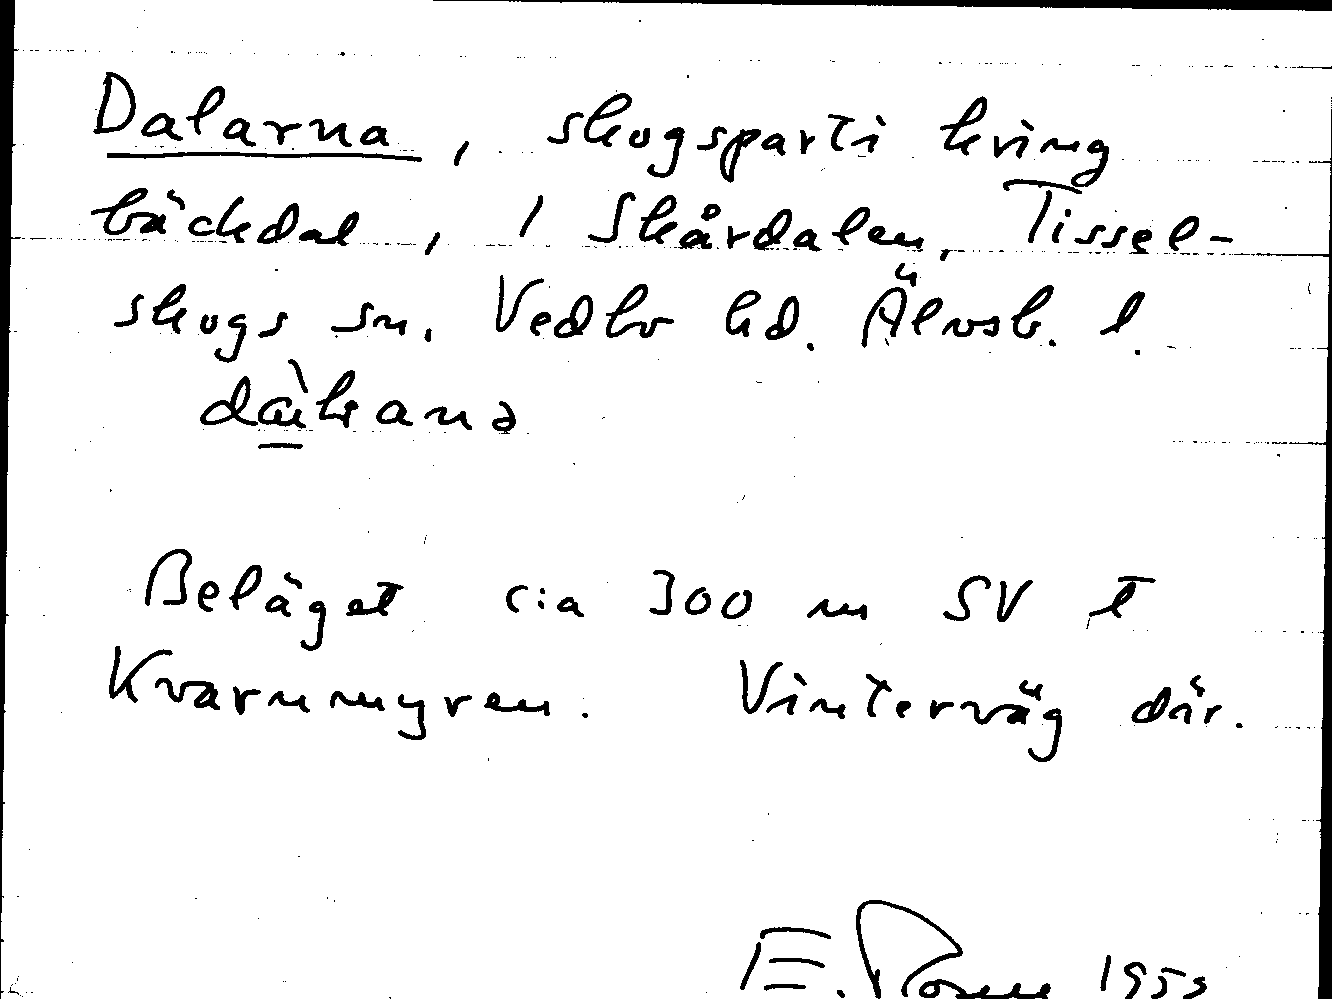 Dalarna, skogsparti kring
bäckdal, 1 Skårdalen, Tissel-
skogs sn. Vedbo hd. Älvsb. l.
Beläget c:a 300 m SV t
Kvarnmyren. Vinterväg där.
E. 195